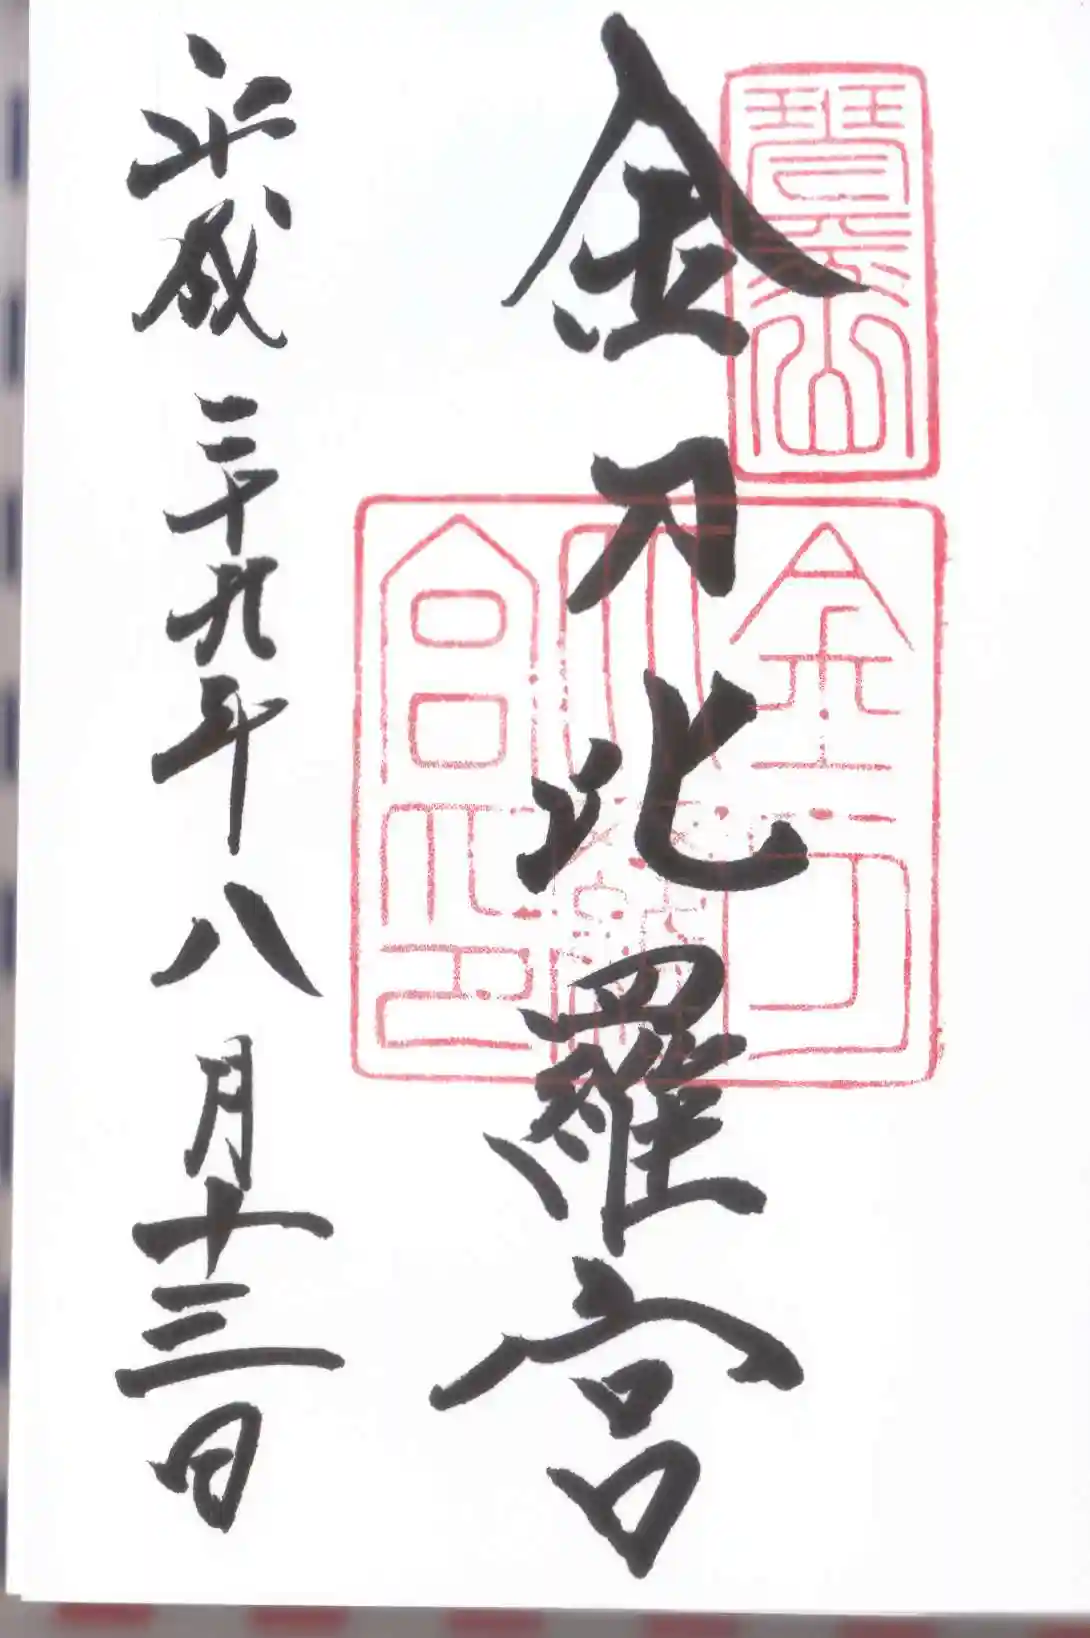 琴平山
金刀比羅宮
金刀比羅宮印
平成二十九年八月十三日